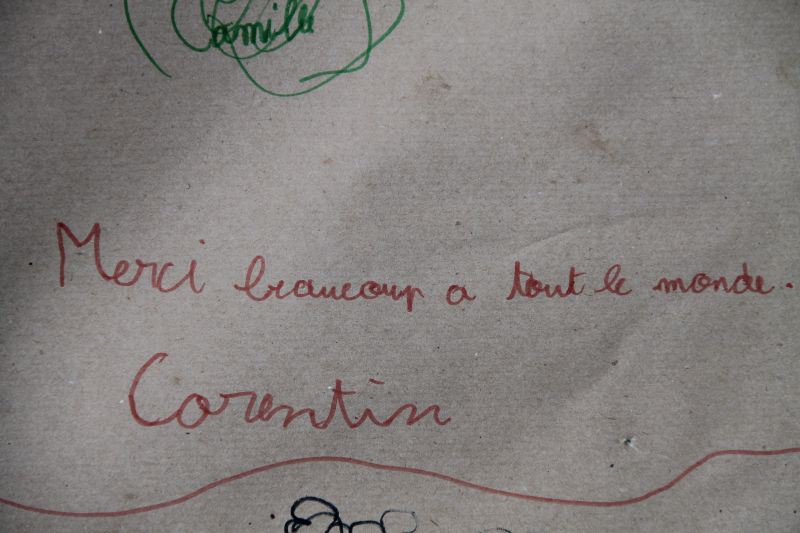 Camille
Merci beaucoup a tout le monde.
Corentin